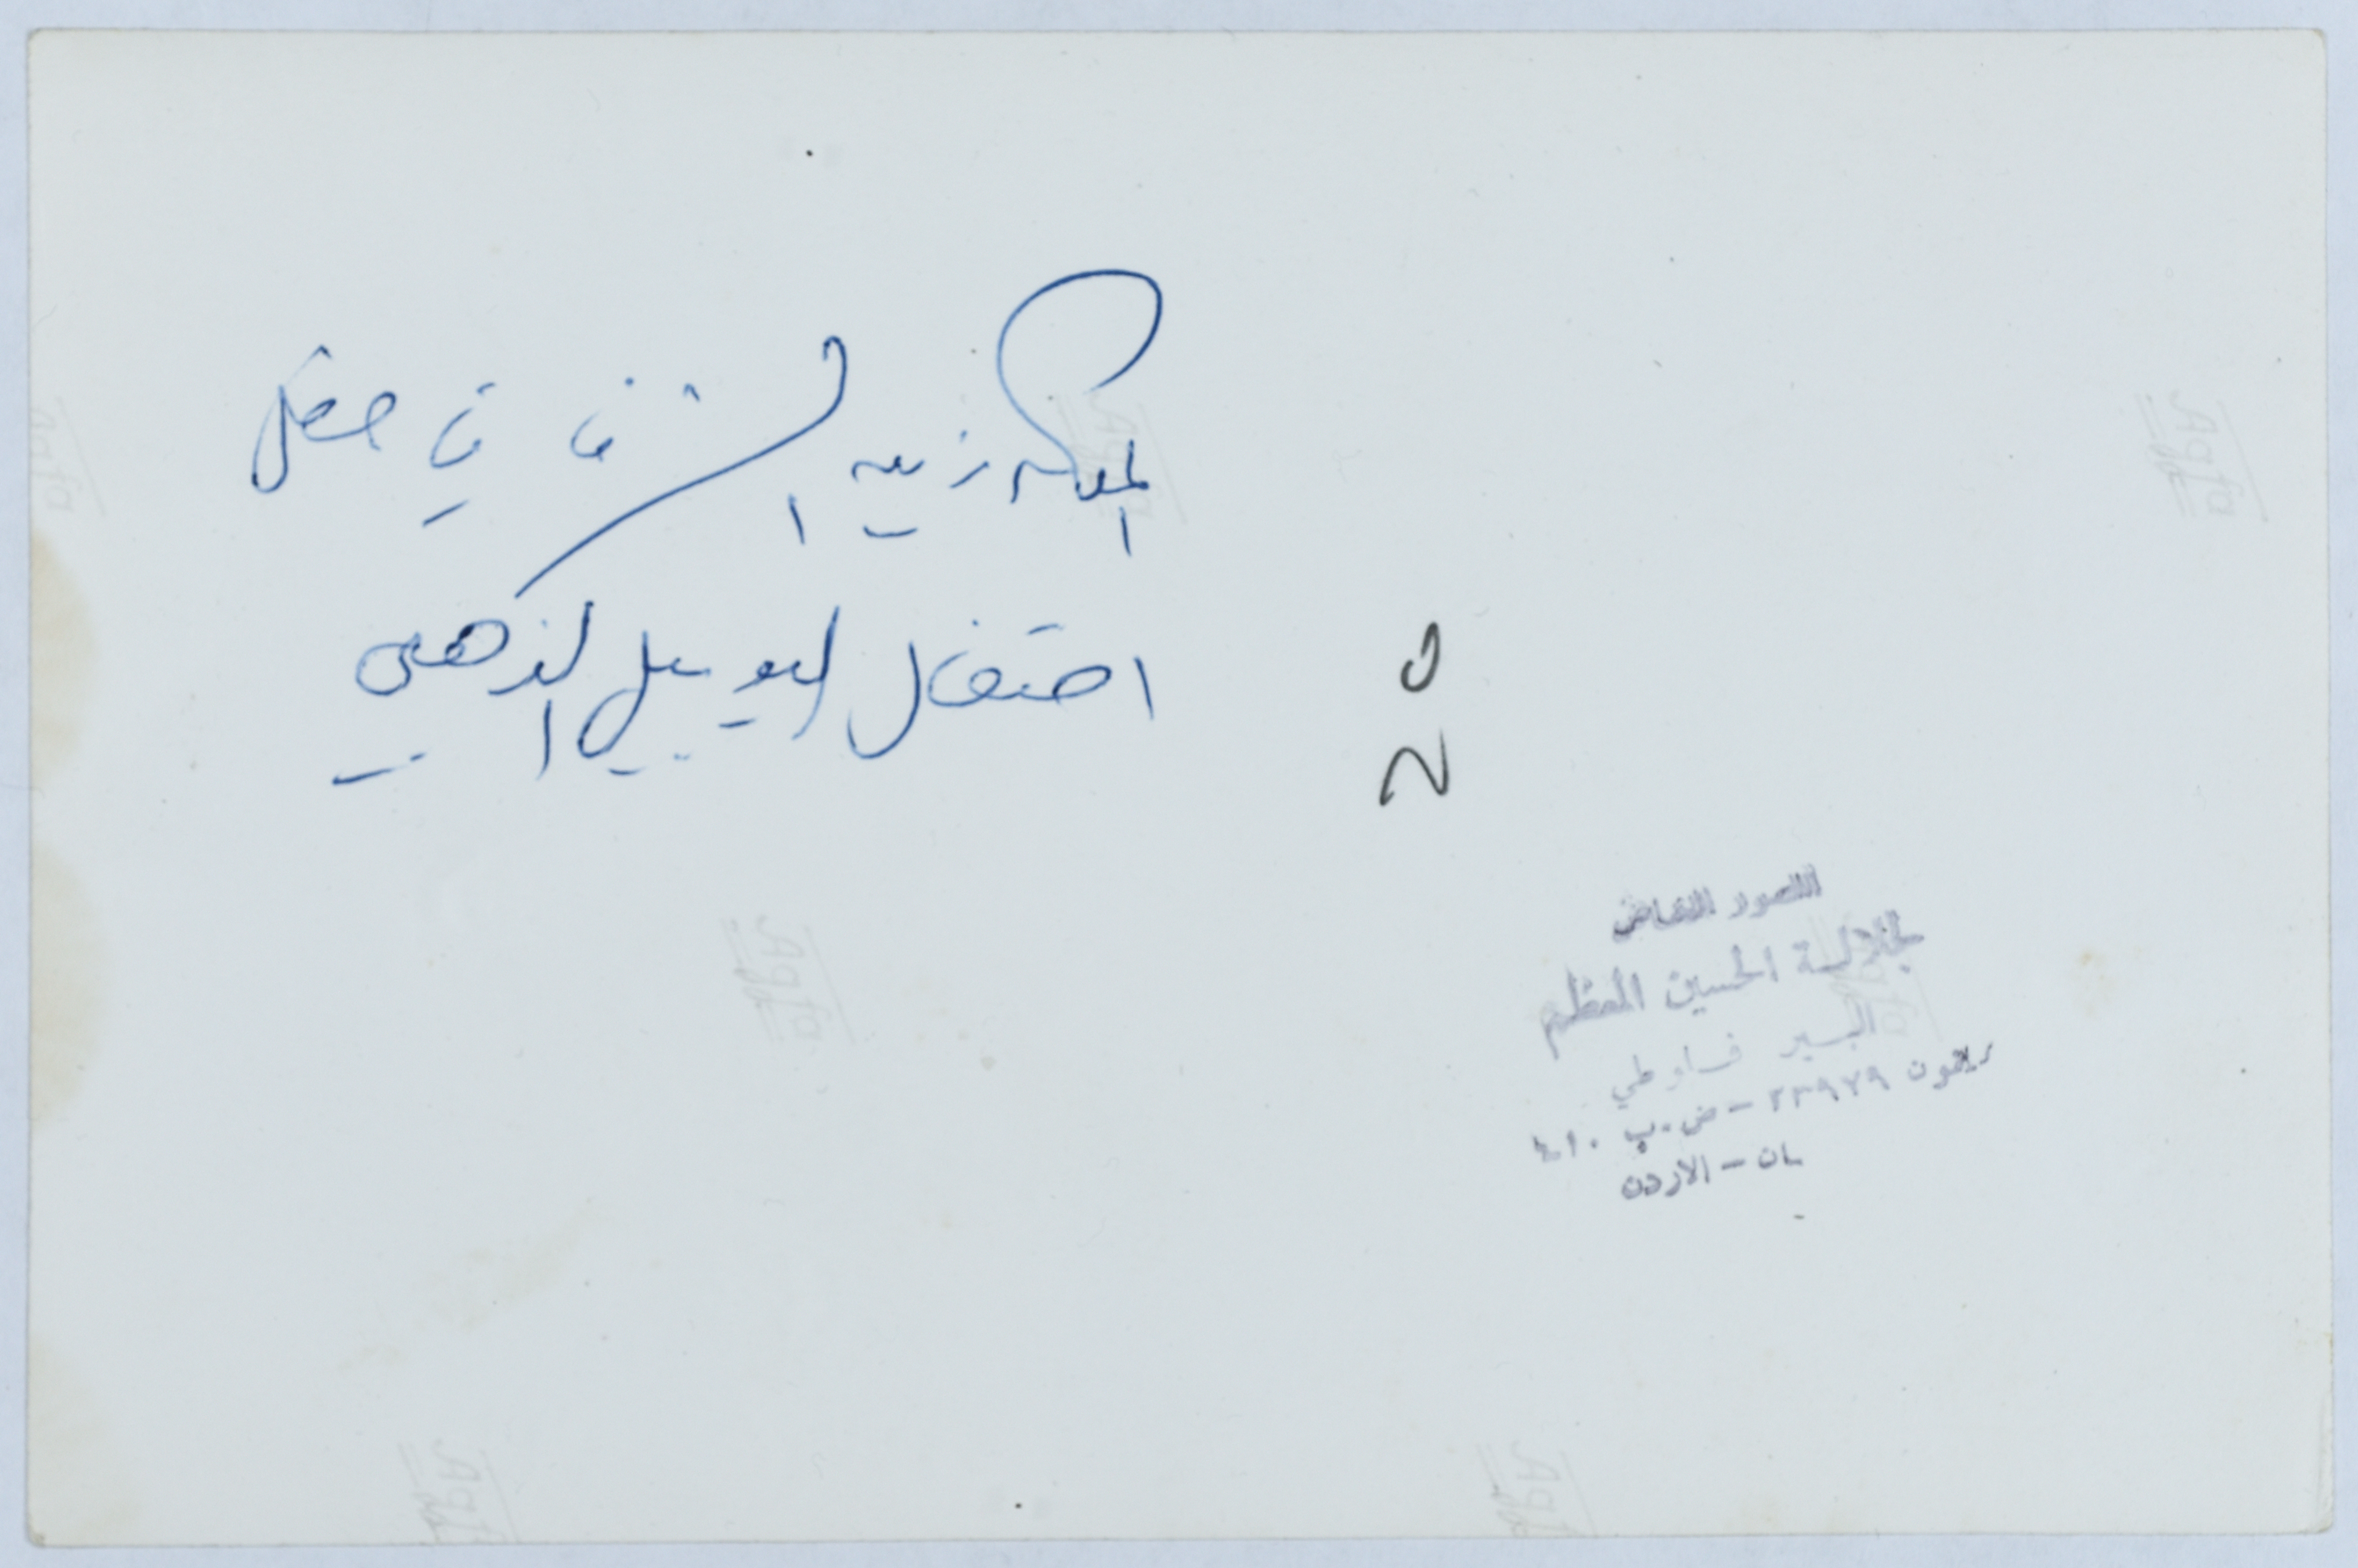 الملكة زين الشرف في حفل
احتفال اليوبيل الذهبي
المصور الخاص
لجلالة الحسين المعظم
البير فلاوطي
تلفون ٢٣٩٧٩ - ص.ب
الاردن
Agfa
Agfa
Agfa
Agfa
Agfa